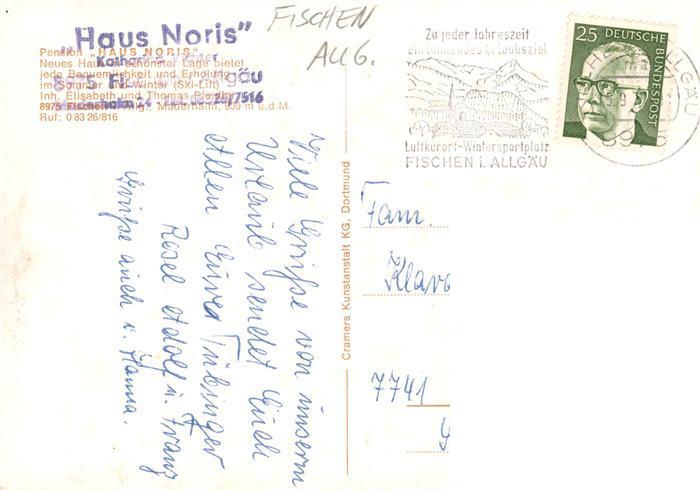 „Haus Noris”
FISCHEN
AUG.
Pension "HAUS NORIS"
Neues Haus in schönster Lage bietet
jede Bequemlichkeit und Erholung
im Sommer und Winter (Ski-Lift)
Inh. Elisabeth und Thomas
8975 Fischen i. Allg., Maderhalm, 900 m ü.d.M.
Ruf: 0 83 26/816
7516
Zu jeder Jahreszeit
ein lohnendes Urlaubsziel
Luftkurort-Wintersportplatz
FISCHEN i. ALLGÄU
25 DEUTSCHE BUNDESPOST
Viele Grüße von unserm
Urlaub sendet Euch
Allen Eure Tübinger
Resel Adolf u. Franz
Grüße auch v. Hanna.
Cramers Kunstanstalt KG, Dortmund
Fam.
Klav
7741